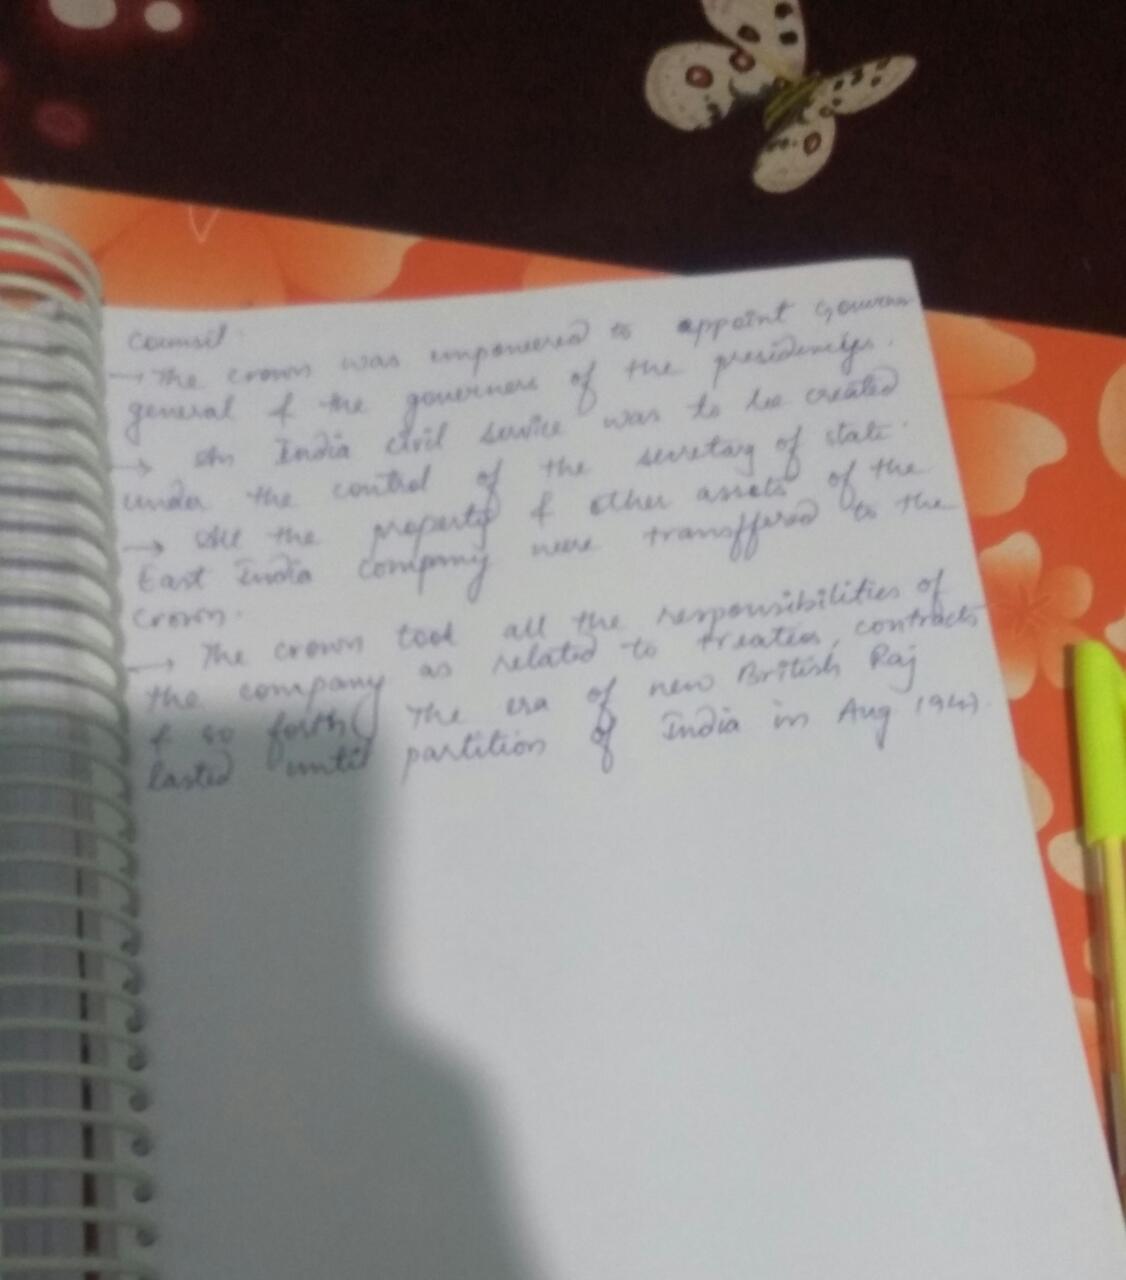 counsil.
→ The crown was empowered to appoint Governer
general & the governers of the presidencies.
→ An India civil service was to be created
under the control of the secretary of state.
→ All the property & other assets of the
East India company were transffered to the
crown.
→ The crown took all the responsibilities of
the company as related to treaties, contracts
& so forth. The era of new British Raj
lasted until partition of India in Aug 1947.